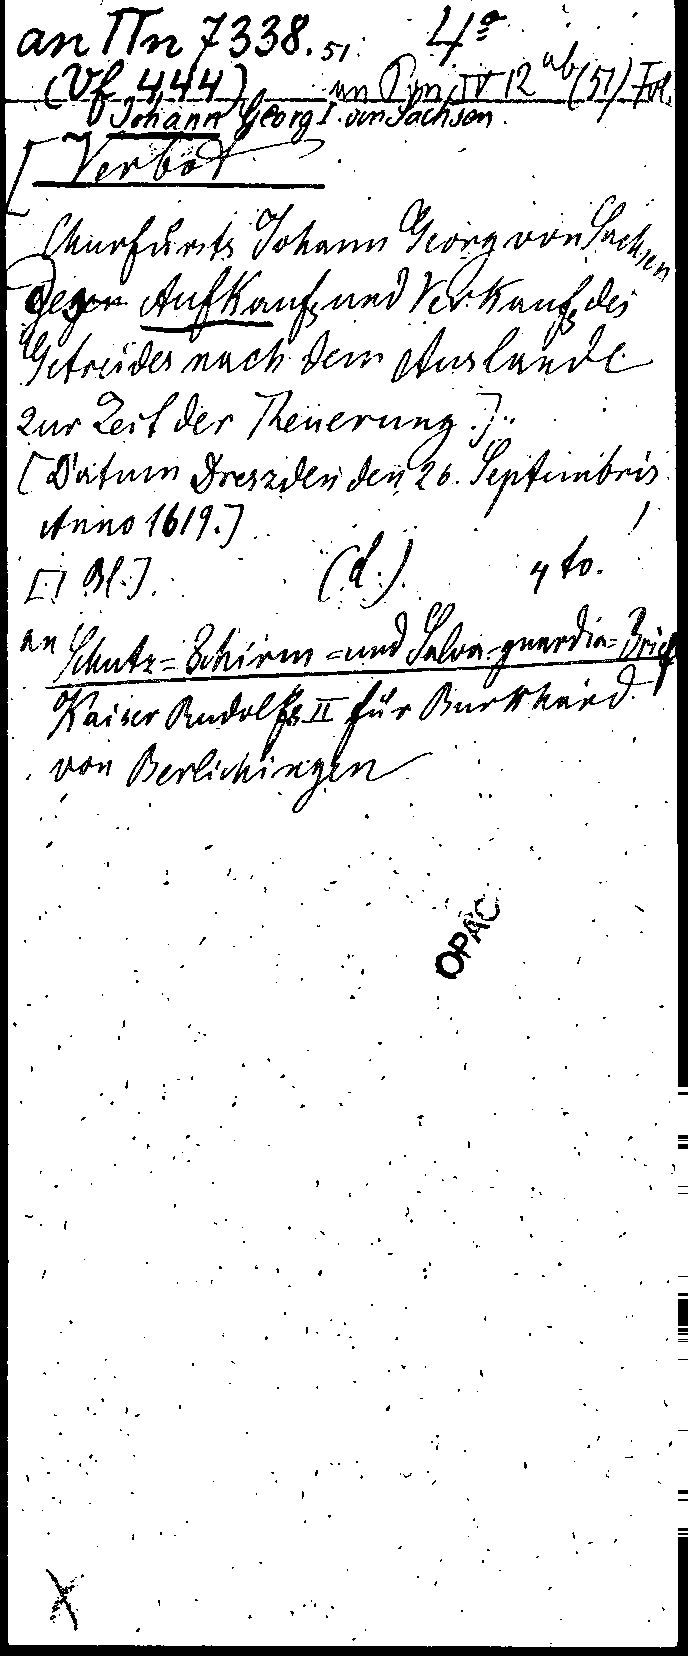 an IIn 7338. 51. 4º
(Vf 444) an Pon IV 12 ab (51) Fol.
Johann Georg I. von Sachsen
[Verbot
Churfürsts Johann Georg von Sachsen
gegen Aufkauf und Verkauf des
Getreides nach dem Auslande
zur Zeit der Theuerung.]
[Datum Dreszden den 26. Septembris
Anno 1619.]
[1 Bl.] (d.) 4to.
an Schutz= Schirm =und Salva-guardia=Brief
Kaiser Rudolfs II für Burkhard
von Berlichingen
OPAC
X